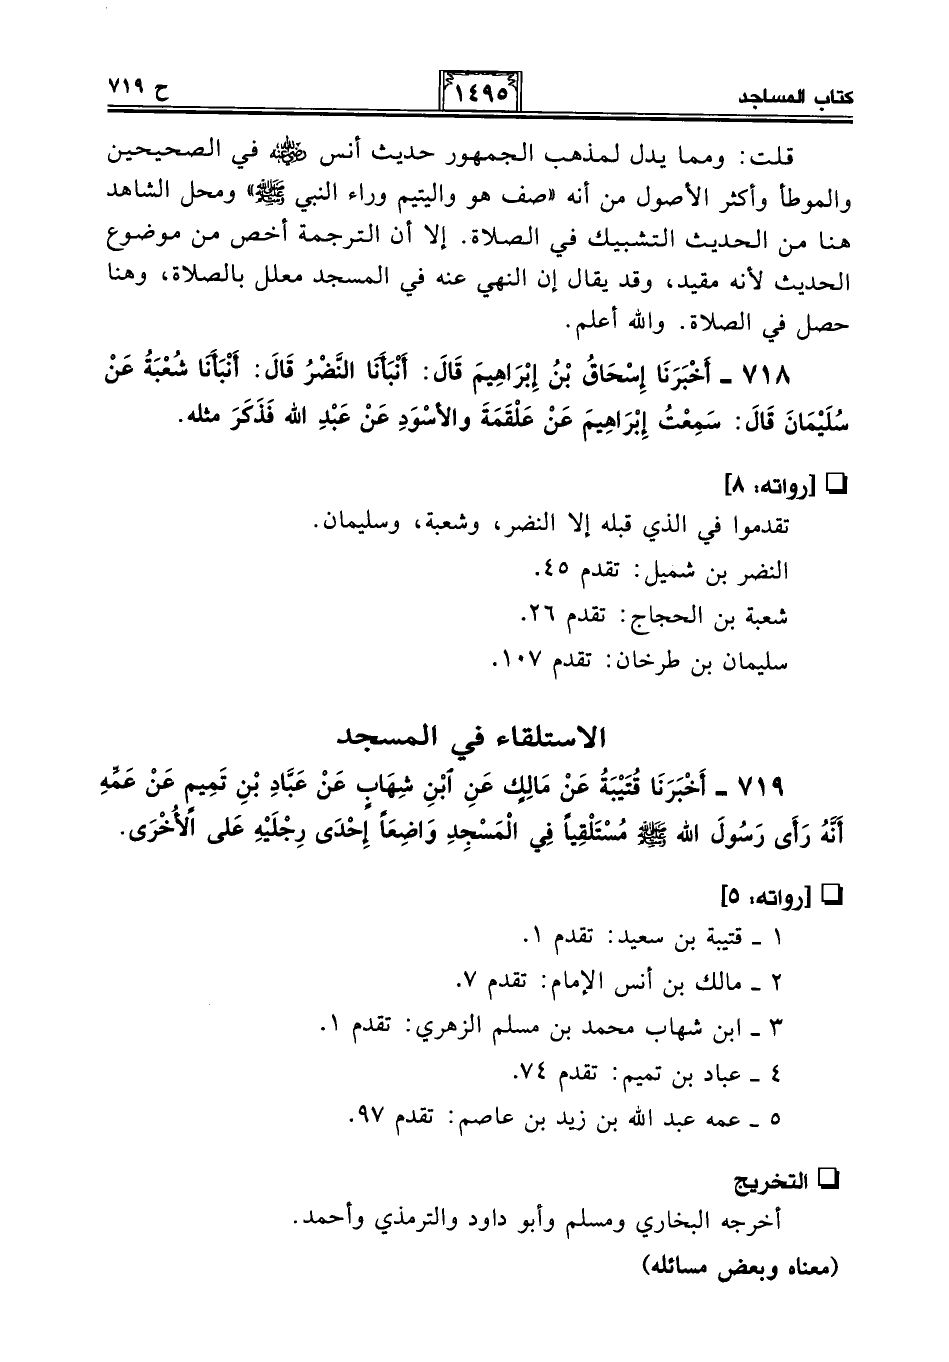 كتاب المساجد ١٤٩٥ ح ٧١٩
قلت: ومما يدل لمذهب الجمهور حديث أنس رضي الله عنه في الصحيحين
والموطأ وأكثر الأصول من أنه «صف هو واليتيم وراء النبي ﷺ» ومحل الشاهد
هنا من الحديث التشبيك في الصلاة. إلا أن الترجمة أخص من موضوع
الحديث لأنه مقيد، وقد يقال إن النهي عنه في المسجد معلل بالصلاة، وهنا
حصل في الصلاة. والله أعلم.
٧١٨ ـ أَخْبَرَنَا إِسْحَاقُ بْنُ إِبْرَاهِيمَ قَالَ: أَنْبَأَنَا النَّضْرُ قَالَ: أَنْبَأَنَا شُعْبَةُ عَنْ
سُلَيْمَانَ قَالَ: سَمِعْتُ إِبْرَاهِيمَ عَنْ عَلْقَمَةَ والأسْوَدِ عَنْ عَبْدِ الله فَذَكَرَ مثله.
❏ [رواته: ٨]
تقدموا في الذي قبله إلا النضر، وشعبة، وسليمان.
النضر بن شميل: تقدم ٤٥.
شعبة بن الحجاج: تقدم ٢٦.
سليمان بن طرخان: تقدم ١٠٧.
الاستلقاء في المسجد
٧١٩ ـ أَخْبَرَنَا قُتَيْبَةُ عَنْ مَالِكٍ عَنِ ٱبْنِ شِهَابٍ عَنْ عَبَّادِ بْنِ تَمِيمٍ عَنْ عَمِّهِ
أَنَّهُ رَأَى رَسُولَ الله ﷺ مُسْتَلْقِياً فِي الْمَسْجِدِ وَاضِعَاً إِحْدَى رِجْلَيْهِ عَلى الْأُخْرَى.
❏ [رواته: ٥]
١ ـ قتيبة بن سعيد: تقدم ١.
٢ ـ مالك بن أنس الإمام: تقدم ٧.
٣ ـ ابن شهاب محمد بن مسلم الزهري: تقدم ١.
٤ ـ عباد بن تميم: تقدم ٧٤.
٥ ـ عمه عبد الله بن زيد بن عاصم: تقدم ٩٧.
❏ التخريج
أخرجه البخاري ومسلم وأبو داود والترمذي وأحمد.
(معناه وبعض مسائله)